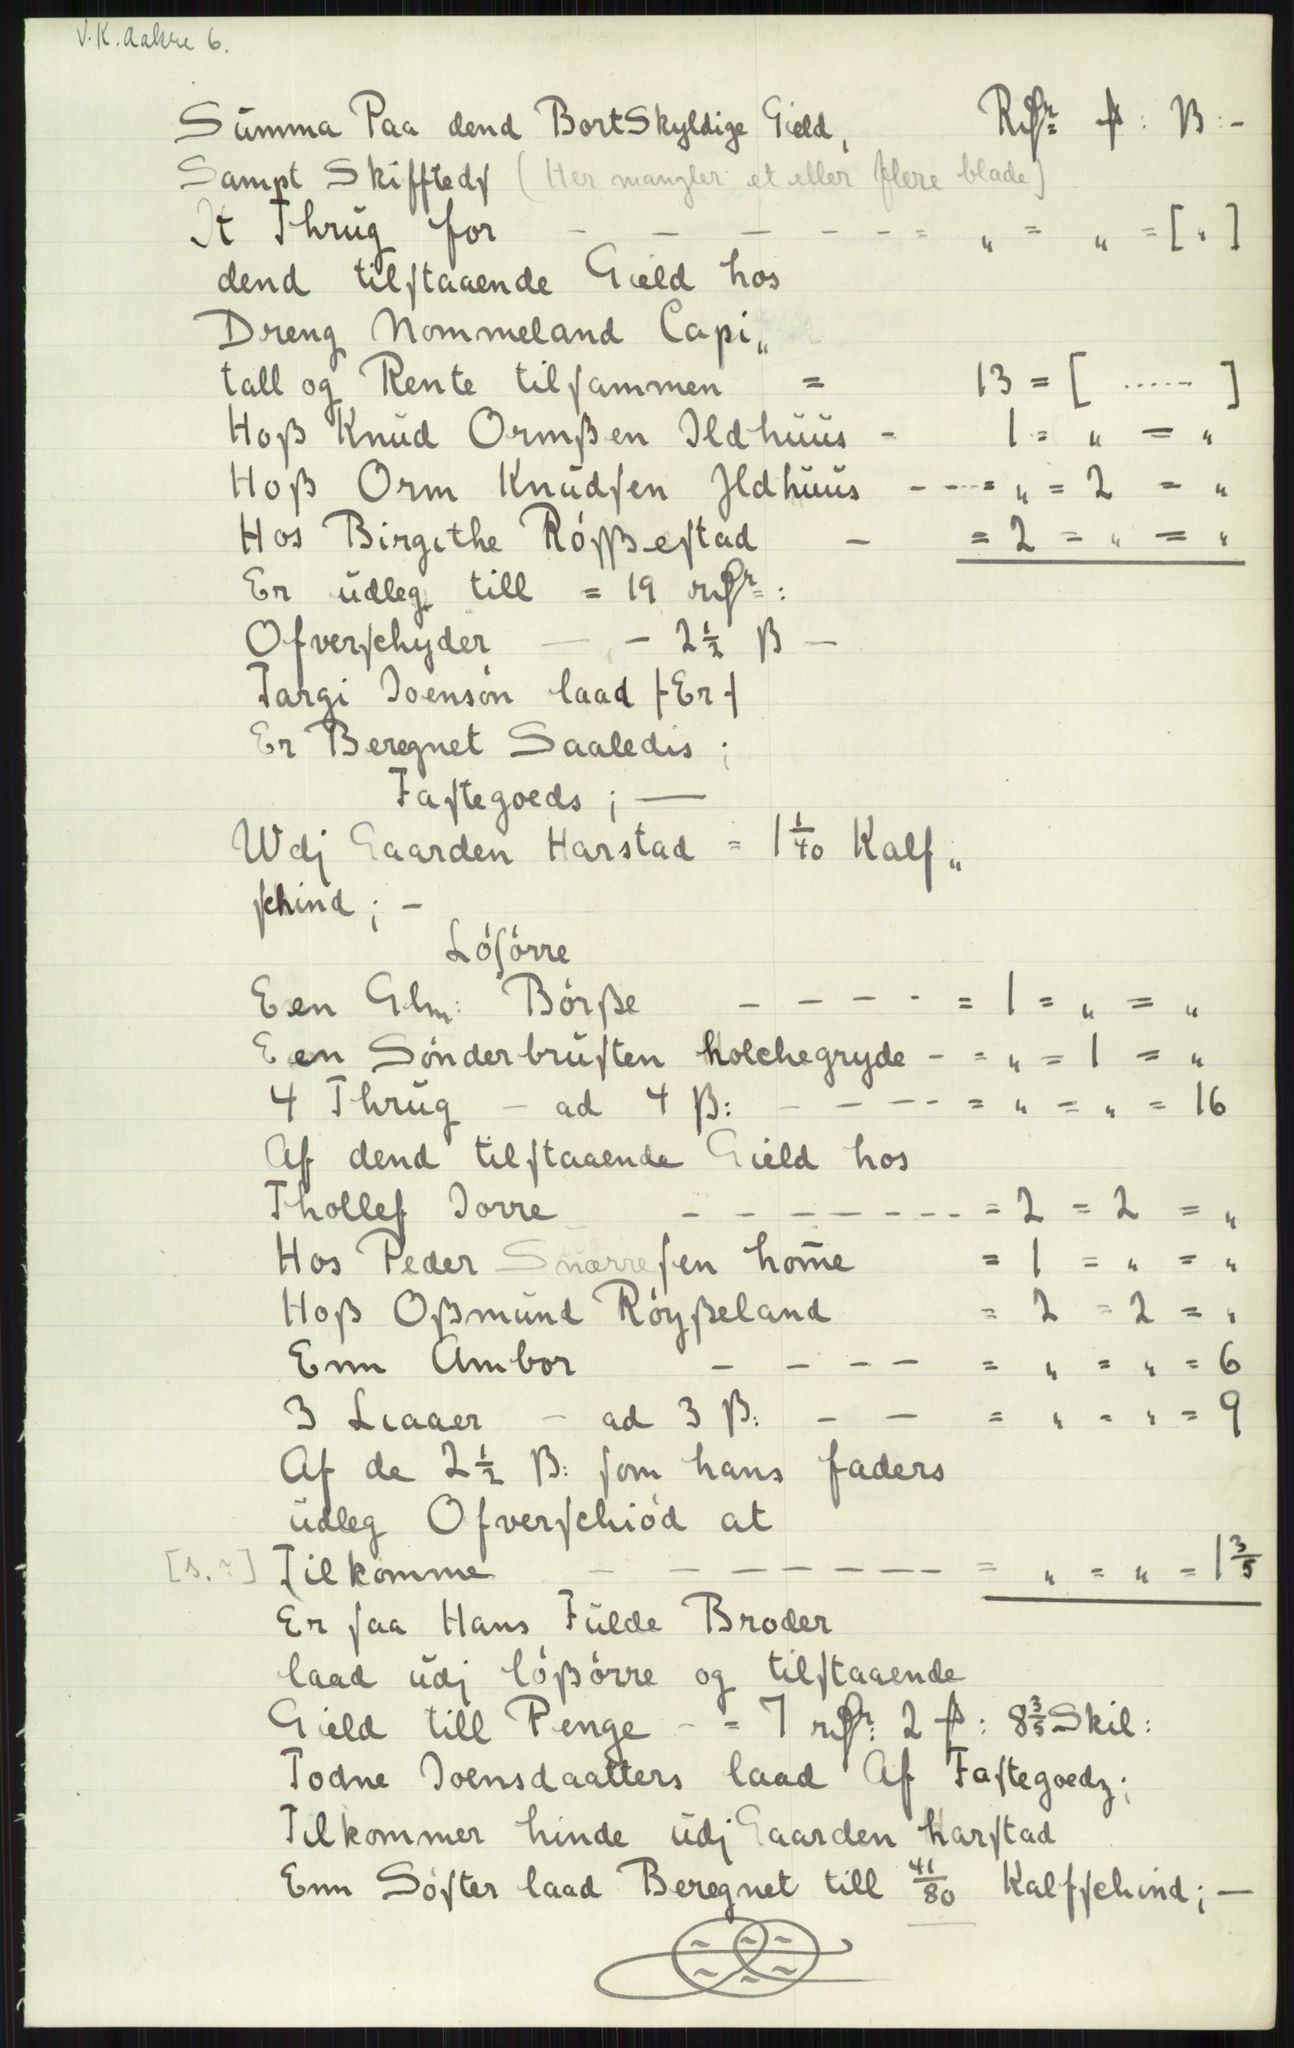 V.K. Aakre 6.
Summa Paa dend BortSkyldige Gield, Rdr: ↄ: ß:-
Sampt Skifftedſ (Her mangler et eller flere blade)
It Thrug for - - - - - = „ = „ = [„]
dend tilſtaaende Gield hos
Dreng Nommeland Capi„
tall og Rente tilſammen = 13 = [ ...... ]
Hoß Knud Ormßen Ildhuus - 1 = „ = „
Hoß Orm Knudſen Ildhuus - - - = „ = 2 = „
Hos Birgithe Röſßeſtad - = 2 = „ = „
Er udleg till = 19 rdr:
Ofverſchyder - - 2½ ß -
Targi Joensön laad /Er/
Er Beregnet Saaledis ;
Faſtegoeds ; -
Wdj Gaarden Harstad = 1 1/40 Kalf„
ſchind ; -
Löſörre
Een Glm: Börße - - - - = 1 = „ = „
Een Sönderbruſten kolchegryde - = „ = 1 = „
4 Thrug - ad 4 ß: - - - - = „ = „ = 16
Af dend tilſtaaende Gield hos
Thollef Jorre - - - - - - - = 2 = 2 = „
Hos Peder Snorreſen hom̄e = 1 = „ = „
Hoß Oßmund Röyßeland = 2 = 2 = „
Enn Ambor - - - - = „ = „ = 6
3 Liaaer - ad 3 ß: - - = „ = „ = 9
Af de 2½ ß: ſom hans faders
udleg Ofverſchiöd at
[s.?] Tilkomme - - - - - - - = „ = „ = 1 3/5
Er ſaa Hans Fulde Broder
laad udj lößörre og tilſtaaende
Gield till Penge - = 7 rdr: 2 ↄ: 8 3/5 Skil:
Todne Joensdaatters laad Af Faſtegoedz;
Tilkommer hinde udj Gaarden harſtad
Enn Söſter laad Beregnet till 41/80 Kalfſchind; -